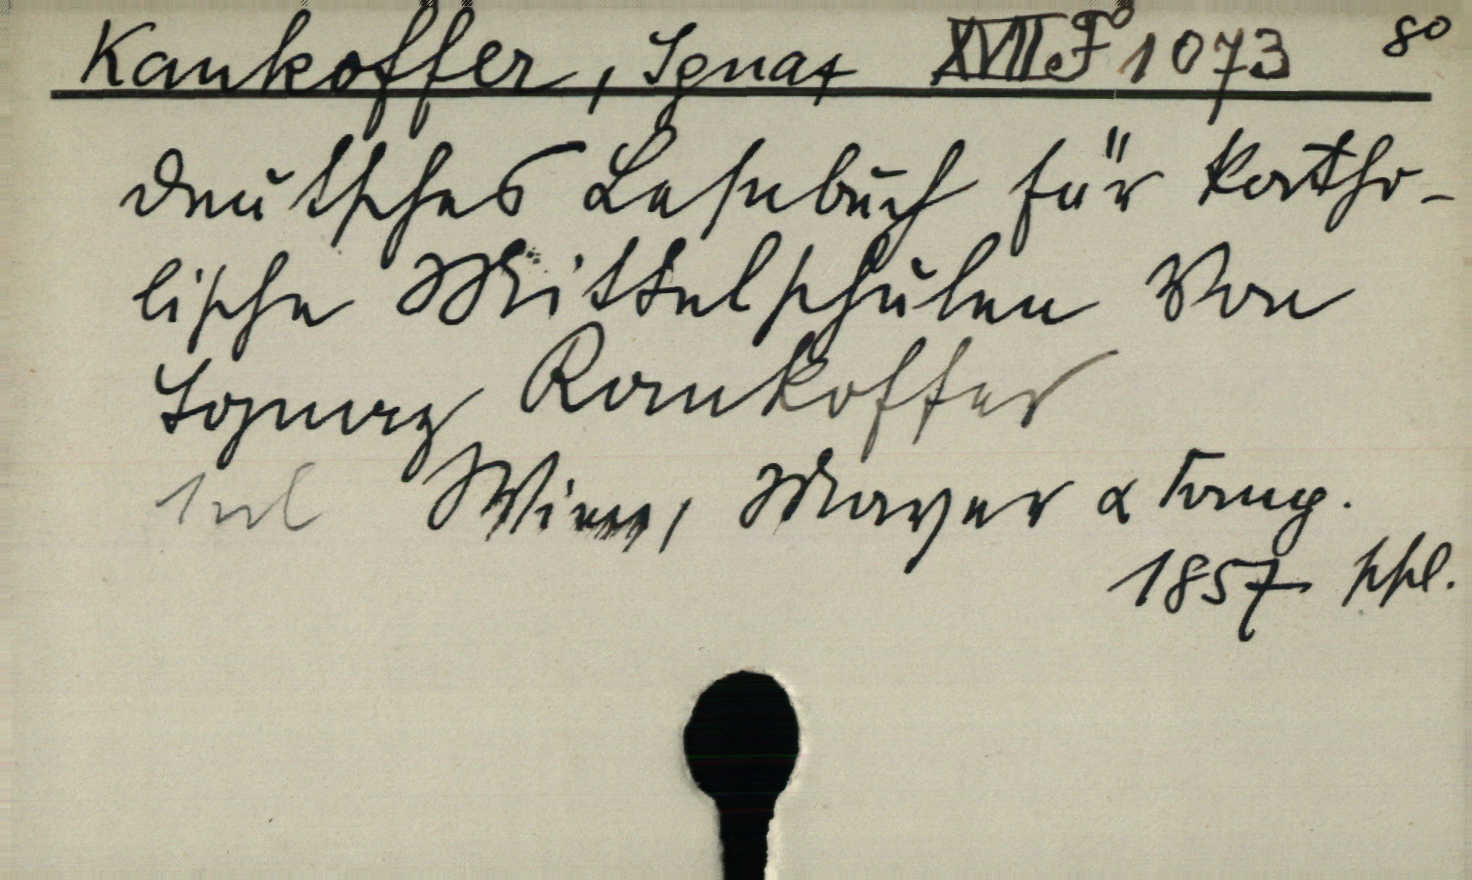 Kankoffer, Ignaz XVII F° 1073 8°
Deutsches Lesebuch für katho-
lische Mittelschulen Von
Ignaz Kankoffer
Wien, Mayer & Comp.
1857